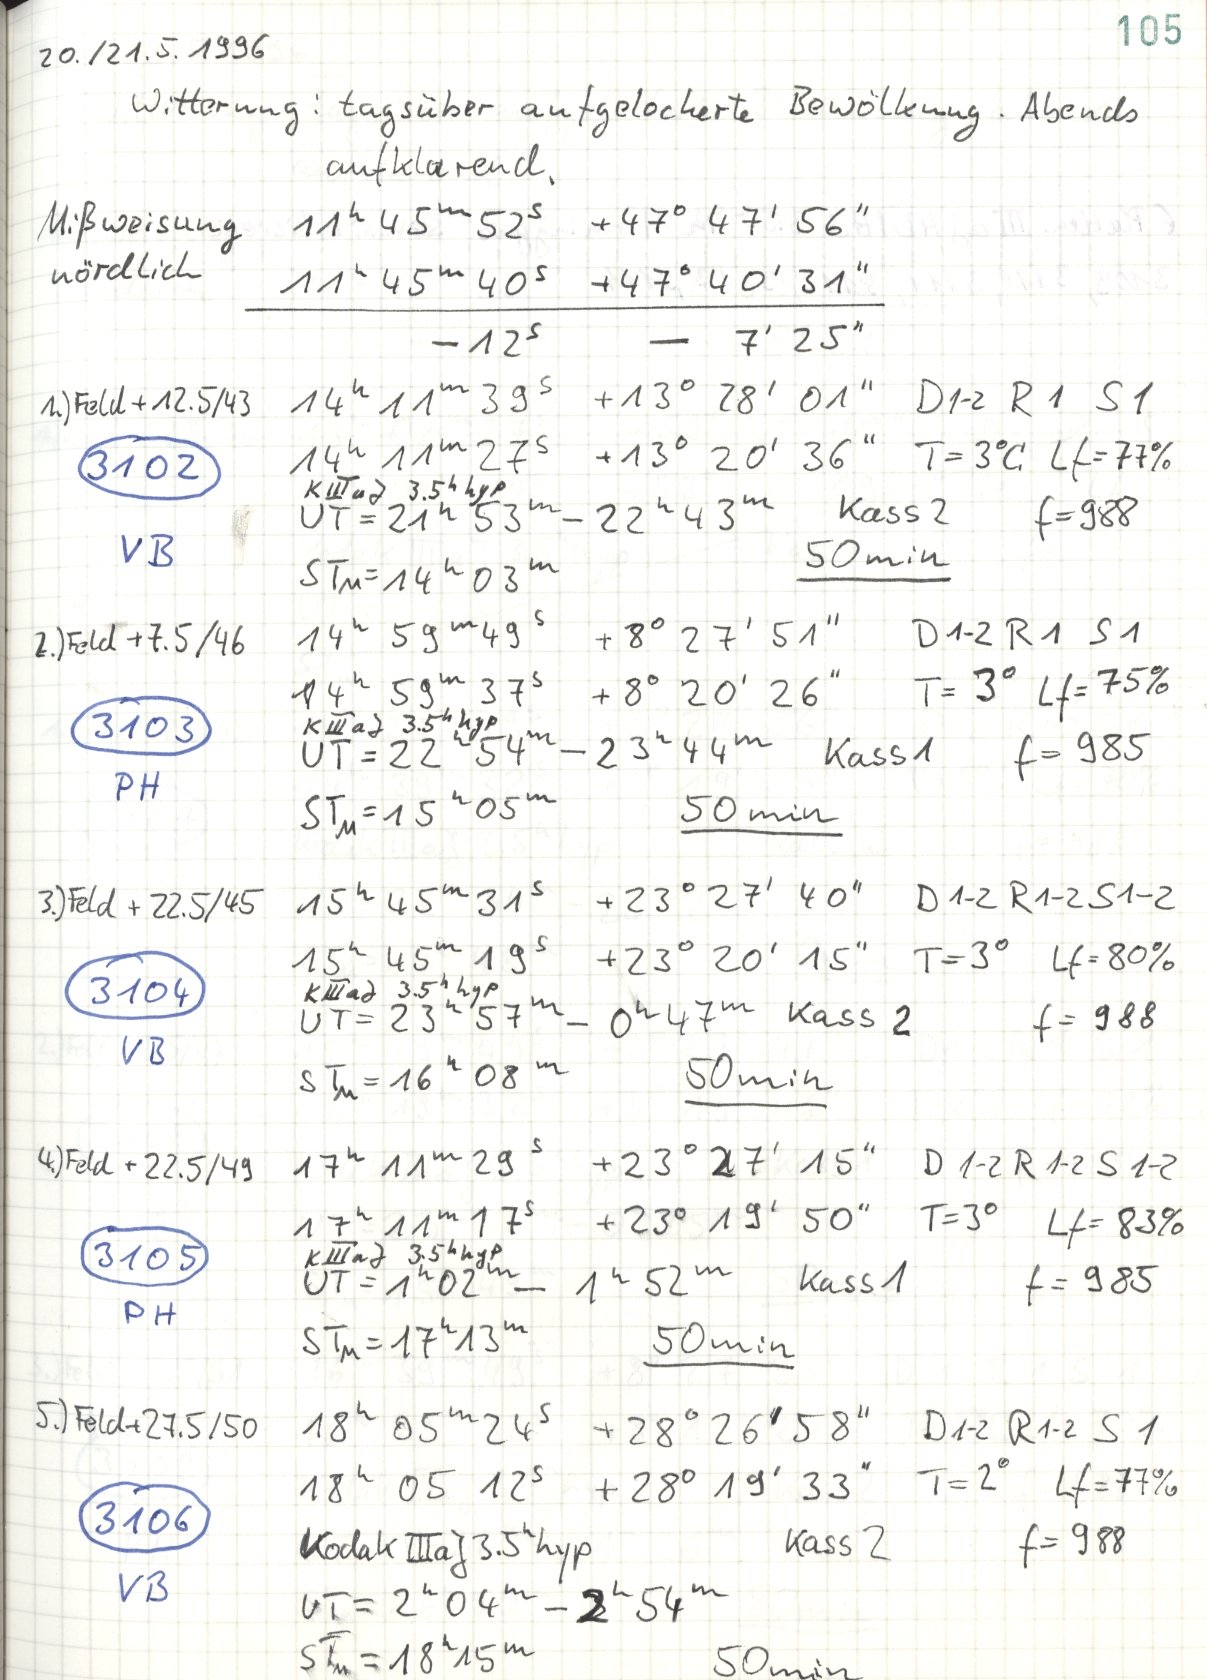 105
20./21.5.1996
Witterung: tagsüber aufgelockerte Bewölkung. Abends
aufklarend.
Mißweisung 11ʰ 45ᵐ 52ˢ +47° 47' 56"
nördlich 11ʰ 45ᵐ 40ˢ +47° 40' 31"
-12ˢ - 7' 25"
1.) Feld +12.5/43 14ʰ 11ᵐ 39ˢ +13° 28' 01" D1-2 R1 S1
3102 14ʰ 11ᵐ 27ˢ +13° 20' 36" T=3°C Lf=77%
KIIIaJ 3.5ʰ hyp
UT=21ʰ 53ᵐ - 22ʰ 43ᵐ Kass 2 f=988
VB 50min
STM=14ʰ 03ᵐ
2.) Feld +7.5/46 14ʰ 59ᵐ 49ˢ +8° 27' 51" D1-2 R1 S1
3103 14ʰ 59ᵐ 37ˢ +8° 20' 26" T=3° Lf=75%
KIIIaJ 3.5ʰ hyp
UT=22ʰ 54ᵐ - 23ʰ 44ᵐ Kass 1 f=985
PH
STM=15ʰ 05ᵐ 50min
3.) Feld +22.5/45 15ʰ 45ᵐ 31ˢ +23° 27' 40" D1-2 R1-2 S1-2
3104 15ʰ 45ᵐ 19ˢ +23° 20' 15" T=3° Lf=80%
KIIIaJ 3.5ʰ hyp
UT=23ʰ 57ᵐ - 0ʰ 47ᵐ Kass 2 f=988
VB
STM=16ʰ 08ᵐ 50min
4.) Feld +22.5/49 17ʰ 11ᵐ 29ˢ +23° 27' 15" D1-2 R1-2 S1-2
3105 17ʰ 11ᵐ 17ˢ +23° 19' 50" T=3° Lf=83%
KIIIaJ 3.5ʰ hyp
UT=1ʰ 02ᵐ - 1ʰ 52ᵐ Kass 1 f=985
PH
STM=17ʰ 13ᵐ 50min
5.) Feld+27.5/50 18ʰ 05ᵐ 24ˢ +28° 26' 58" D1-2 R1-2 S1
18ʰ 05 12ˢ +28° 19' 33" T=2° Lf=77%
3106 Kodak IIIaJ 3.5ʰ hyp Kass 2 f=988
VB UT=2ʰ 04ᵐ - 2ʰ 54ᵐ
STM=18ʰ 15ᵐ 50min